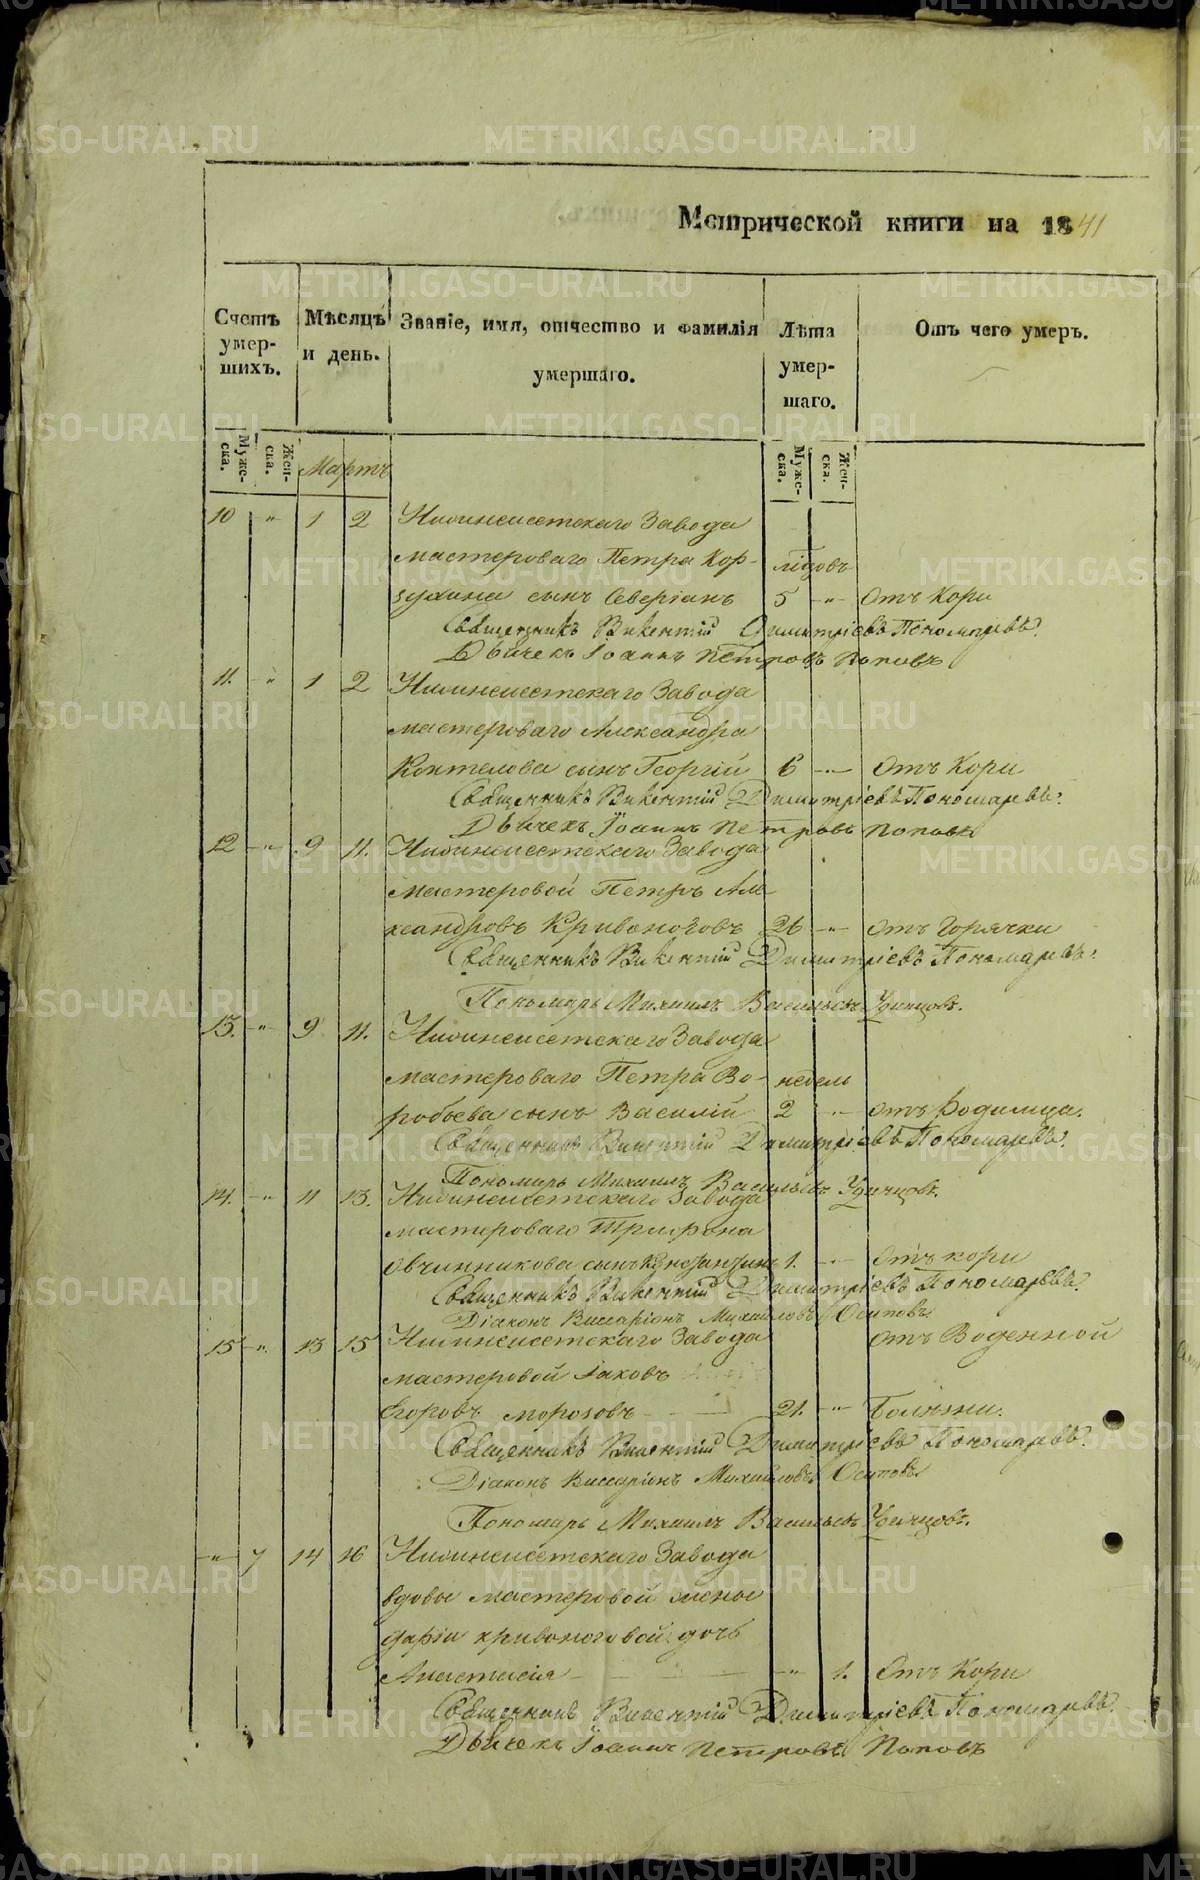 Метрической книги на 1841
Счетъ умер- шихъ.
Мѣсяцъ и день.
Званіе, имя, отчество и фамилія умершаго.
Лѣта умер- шаго.
Отъ чего умеръ.
Муже- ска.
Жен- ска.
Мартъ
Муже- ска.
Жен- ска.
10 " 1 2 Нижнеисетскаго Завода
мастероваго Петра Кор- лѣтовъ
зухина сынъ Северіанъ 5 " Отъ Кори
Священникъ Викентій Димитріевъ Пономаревъ.
Дьячекъ Іоаннъ Петровъ Поповъ
11. " 1 2 Нижнеисетскаго Завода
мастероваго Александра
Коптелова сынъ Георгій 6 " Отъ Кори
Священникъ Викентій Димитріевъ Пономаревъ.
Дьячекъ Іоаннъ Петровъ Поповъ
12 " 9 11. Нижнеисетскаго Завода
мастеровой Петръ Але
ксандровъ Кривоноговъ 26 " Отъ Горячки
Священникъ Викентій Димитріевъ Пономаревъ.
Пономарь Михаилъ Васильевъ Удинцовъ.
13. " 9 11. Нижнеисетскаго Завода
мастероваго Петра Во- недель
робьева сынъ Василій 2 " отъ Родимца.
Священникъ Викентій Димитріевъ Пономаревъ.
Пономарь Михаилъ Васильевъ Удинцовъ.
14. " 11 13. Нижнеисетскаго Завода
мастероваго Трифона
Овчинникова сынъ Константинъ 1. " Отъ кори
Священникъ Викентій Димитріевъ Пономаревъ.
Діаконъ Виссаріонъ Михайловъ Осиповъ.
15 " 13 15 Нижнеисетскаго Завода Отъ Воденной
мастеровой Іаковъ
Егоровъ Морозовъ 21. " Болѣзни.
Священникъ Викентій Димитріевъ Пономаревъ.
Діаконъ Виссаріонъ Михайловъ Осиповъ
Пономарь Михаилъ Васильевъ Удинцовъ.
" 7 14 16 Нижнеисетскаго Завода
вдовы мастеровой жены
Даріи Кривоноговой дочь
Анастасія " 1. Отъ Кори
Священникъ Викентій Димитріевъ Пономаревъ.
Дьячекъ Іоаннъ Петровъ Поповъ
METRIKI.GASO-URAL.RU